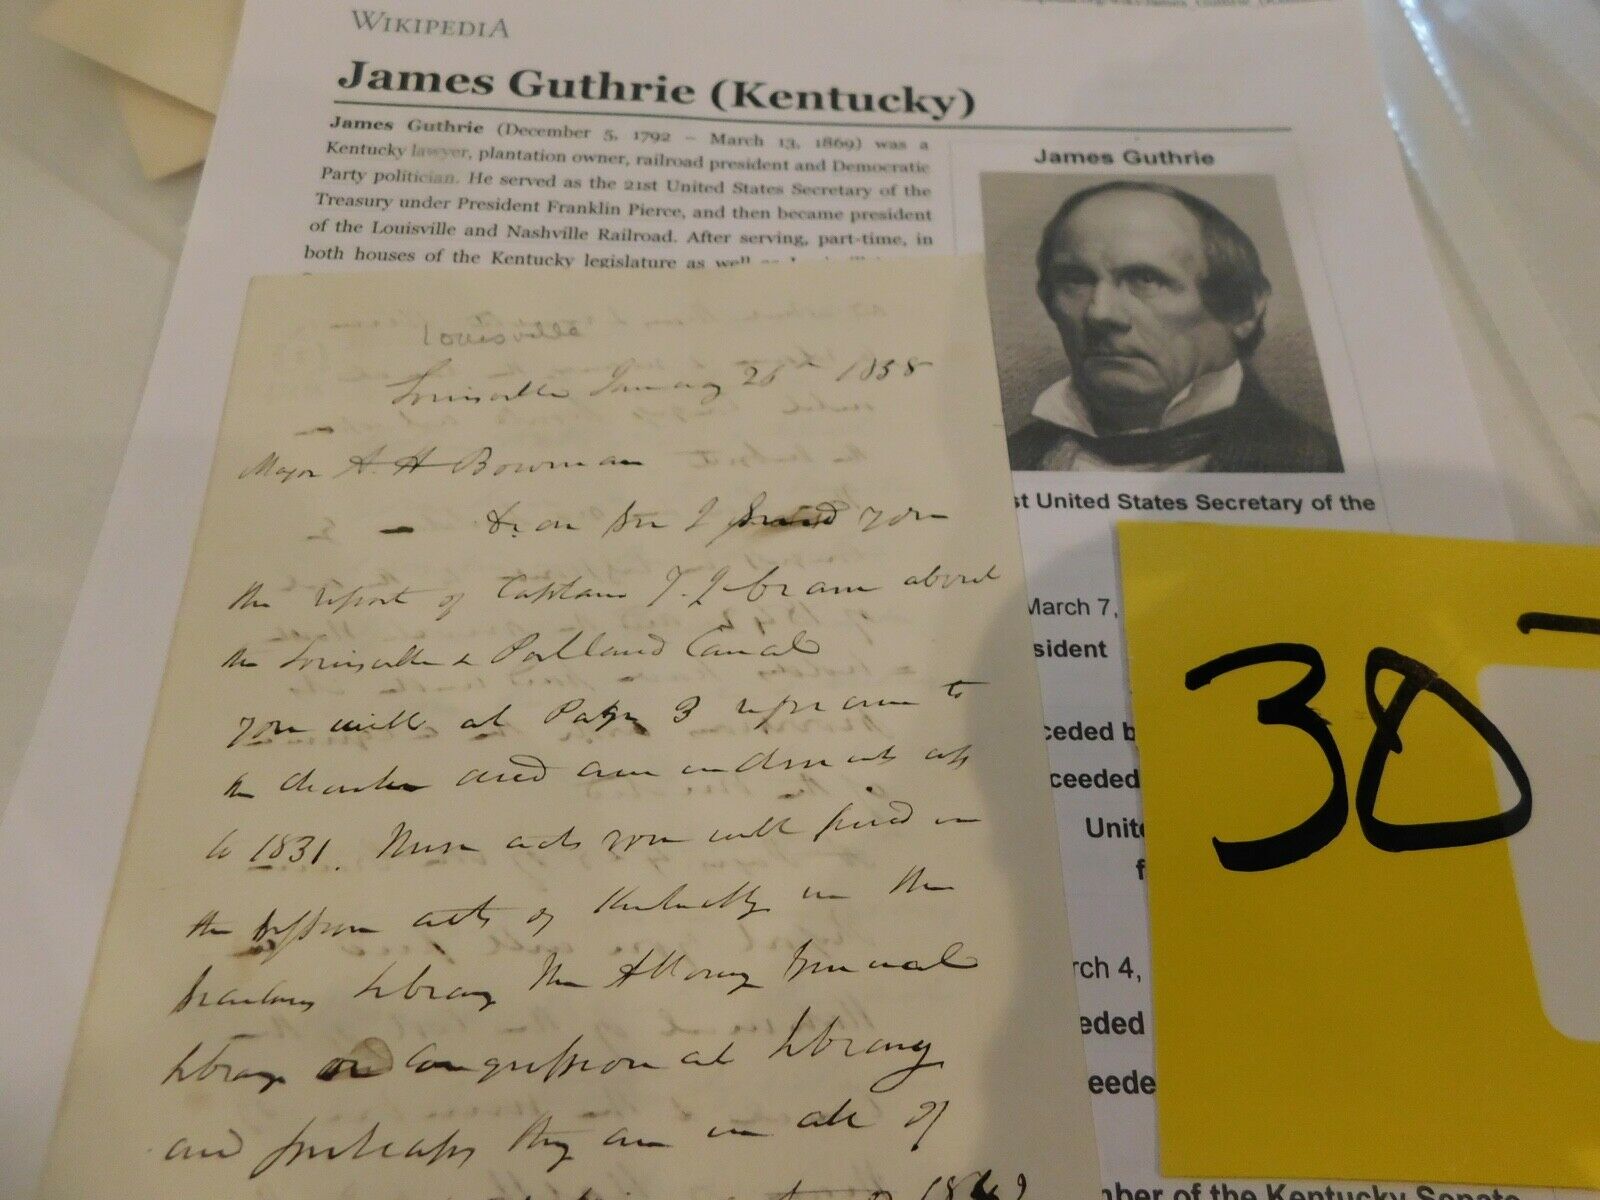 WIKIPEDIA
James Guthrie (Kentucky)
James Guthrie (December 5, 1792 – March 13, 1869) was a
Kentucky lawyer, plantation owner, railroad president and Democratic
Party politician. He served as the 21st United States Secretary of the
Treasury under President Franklin Pierce, and then became president
of the Louisville and Nashville Railroad. After serving, part-time, in
both houses of the Kentucky legislature as well
James Guthrie
st United States Secretary of the
March 7,
sident
ceded b
cceeded
Unite
f
rch 4,
eded
eede
nber of the Kentucky Senate
Louisville January 26th 1858
Major A. H Bowman
Dear Sir I send you
the report of Captain T. J. Cram about
the Louisville & Portland Canal
you will at Page 3 reference to
the charter and amendments
to 1831. These acts you will find in
the session acts of Kentucky in the
Library the Attorney General
Library or Congressional Library
and perhaps they are in all of
30